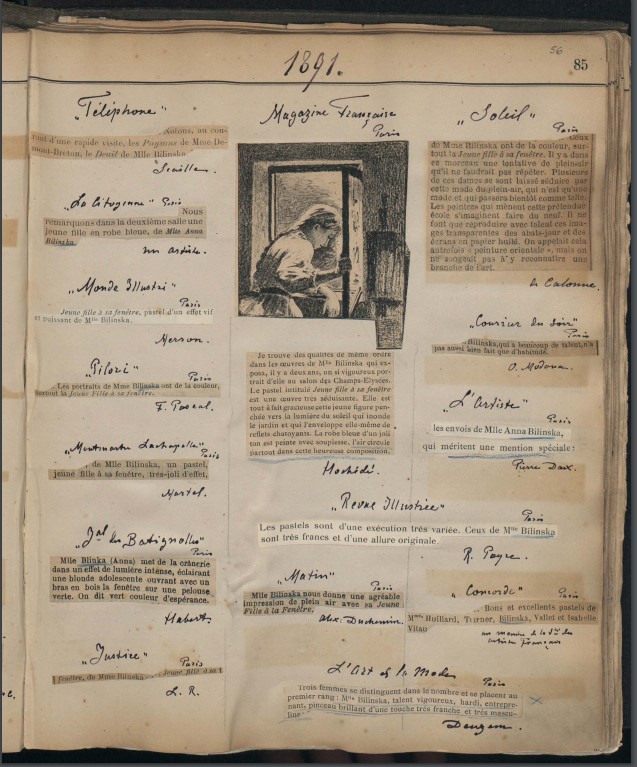 1891.
56
85
„Téléphone"
Notons, au cou-
rant d'une rapide visite, les Paysans de Mme De-
mont-Breton, le Deuil de Mlle Bilinska
„La Citoyenne" Paris
Nous
remarquons dans la deuxième salle une
jeune fille en robe bleue, de Mlle Anna
Bilinska
un artiste.
„Monde Illustré"
Paris
Jeune fille à sa fenêtre, pastel d'un effet vif
et puissant de Mlle Bilinska.
Merson.
„Pilori"
Paris
Les portraits de Mme Bilinska ont de la couleur,
surtout la Jeune Fille à sa fenêtre.
F. Pascal.
„Montmartre Lachapelle"
Paris
de Mlle Bilinska, un pastel,
jeune fille à sa fenêtre, très-joli d'effet,
Martel.
„Jal des Batignolles"
Paris
Mlle Blinka (Anna) met de la crânerie
dans un effet de lumière intense, éclairant
une blonde adolescente ouvrant avec un
bras en bois la fenêtre sur une pelouse
verte. On dit vert couleur d'espérance.
Habert.
„Justice"
Paris
Jeune fille à sa
fenêtre, de Mme Bilinska
L. R.
Magazine Française
Paris
Je trouve des qualités de même ordre
dans les œuvres de Mlle Bilinska qui ex-
posa, il y a deux ans, un si vigoureux por-
trait d'elle au salon des Champs-Elysées.
Le pastel intitulé Jeune fille à sa fenêtre
est une œuvre très séduisante. Elle est
tout à fait gracieuse cette jeune figure pen-
chée vers la lumière du soleil qui inonde
le jardin et qui l'enveloppe elle-même de
reflets chatoyants. La robe bleue d'un joli
ton est peinte avec souplesse, l'air circule
partout dans cette heureuse composition.
Hochedé.
„Revue Illustrée"
Paris
Les pastels sont d'une exécution très variée. Ceux de Mlle Bilinska
sont très francs et d'une allure originale.
R.
„Matin"
Paris
Mlle Bilinska nous donne une agréable
impression de plein air avec sa Jeune
Fille à la Fenêtre.
Alex.
L'Art et la Mode
Paris
Trois femmes se distinguent dans le nombre et se placent au
premier rang: Mlle Bilinska, talent vigoureux, hardi, entrepre-
nant, pinceau brillant d'une touche très franche et très mascu-
line
„Soleil"
Paris
Ceux
de Mme Bilinska ont de la couleur, sur-
tout la Jeune fille à sa fenêtre. Il y a dans
ce morceau une tentative de pleinair
qu'il ne faudrait pas répéter. Plusieurs
de ces dames se sont laissé séduire par
cette mode du plein-air, qui n'est qu'une
mode et qui passera bientôt comme telle.
Les peintres qui mènent cette prétendue
école s'imaginent faire du neuf. Il ne
font que reproduire avec talent ces ima-
ges transparentes des abats-jour et des
écrans en papier huilé. On appelait cela
autrefois « peinture orientale », mais on
ne songeait pas à y reconnaître une
branche de l'art.
de Calonne.
„Courrier du Soir"
Paris
Bilinska, qui a beaucoup de talent, n'a
pas aussi bien fait que d'habitude.
O.
„L'Artiste"
Paris
les envois de Mlle Anna Bilinska,
qui méritent une mention spéciale:
Pierre Dax.
„Concorde"
Paris
Bons et excellents pastels de
Mmes Huillard, Turner, Bilinska, Vallet et Isabelle
Vitau
un membre de la Sté des
artistes Français